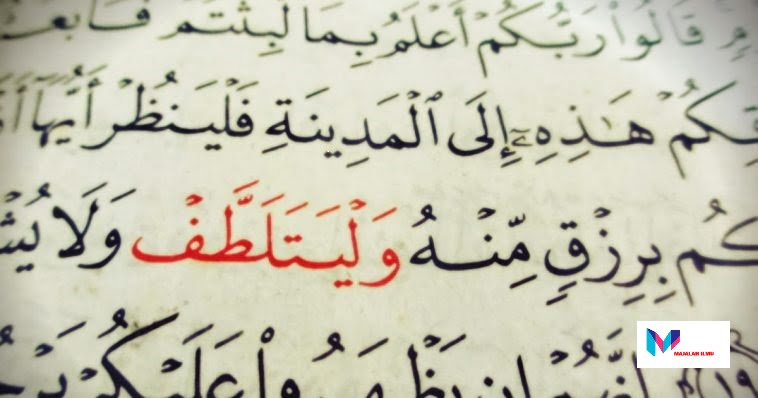 قَالُوا۟ رَبُّكُمْ أَعْلَمُ بِمَا لَبِثْتُمْ
هَـٰذِهِۦٓ إِلَى ٱلْمَدِينَةِ فَلْيَنظُرْ أَيُّهَآ
بِرِزْقٍ مِّنْهُ وَلْيَتَلَطَّفْ وَلَا
عَلَيْكُمْ
١٩
MAJALAH ILMU